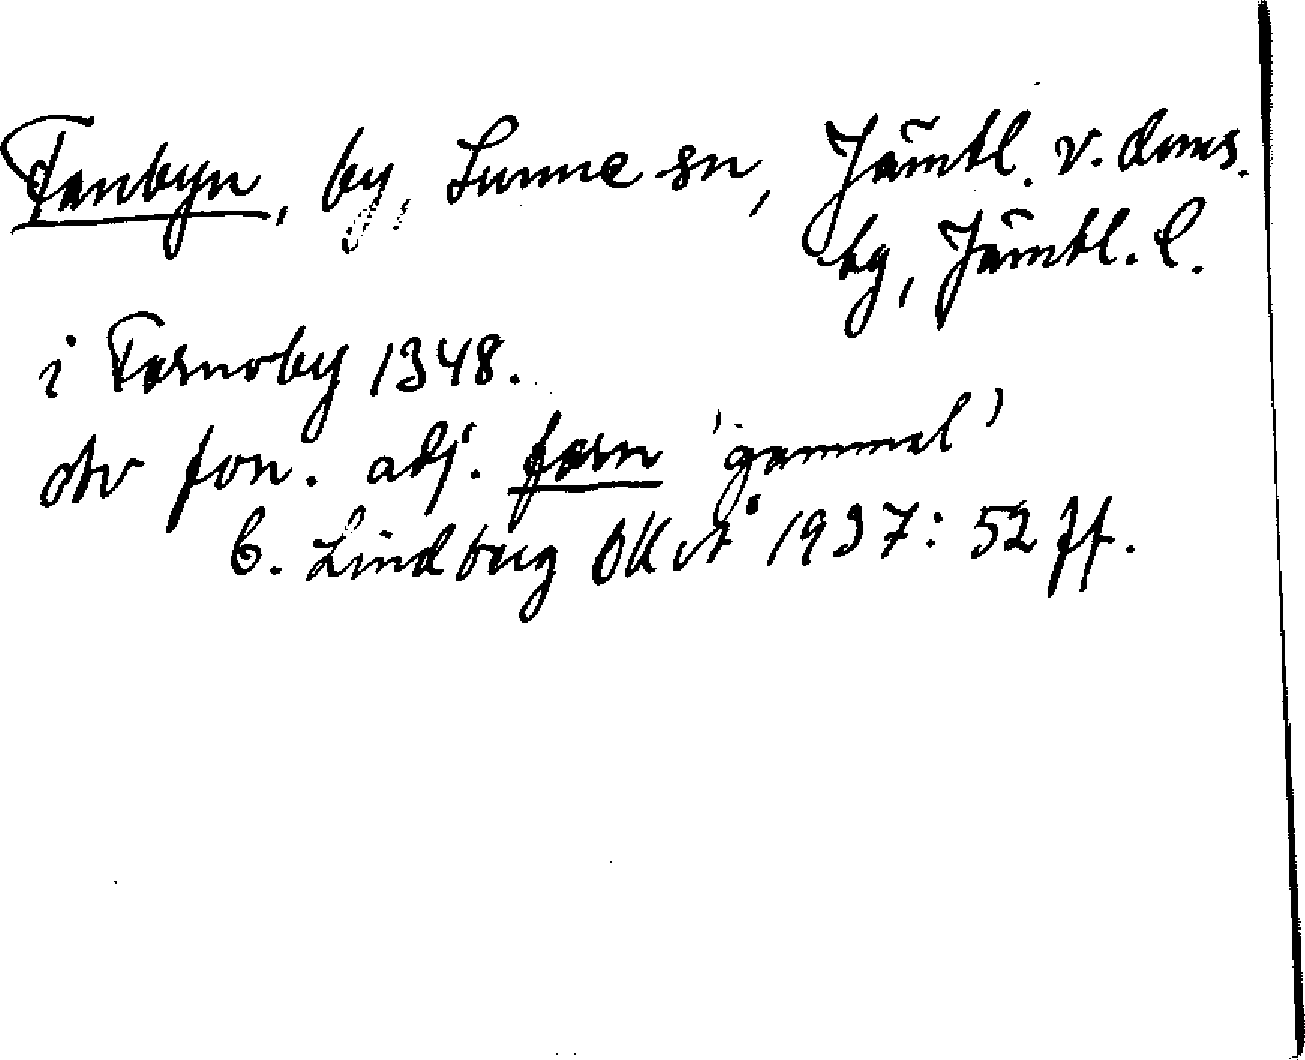 Fanbyn, by, Sunne sn, Jämtl. v. doms.
tg, Jämtl. l.
i Farnoby 1348.
av fon. adj. farn 'gammal'
C. Lindberg OKÅ 1937: 52 ff.